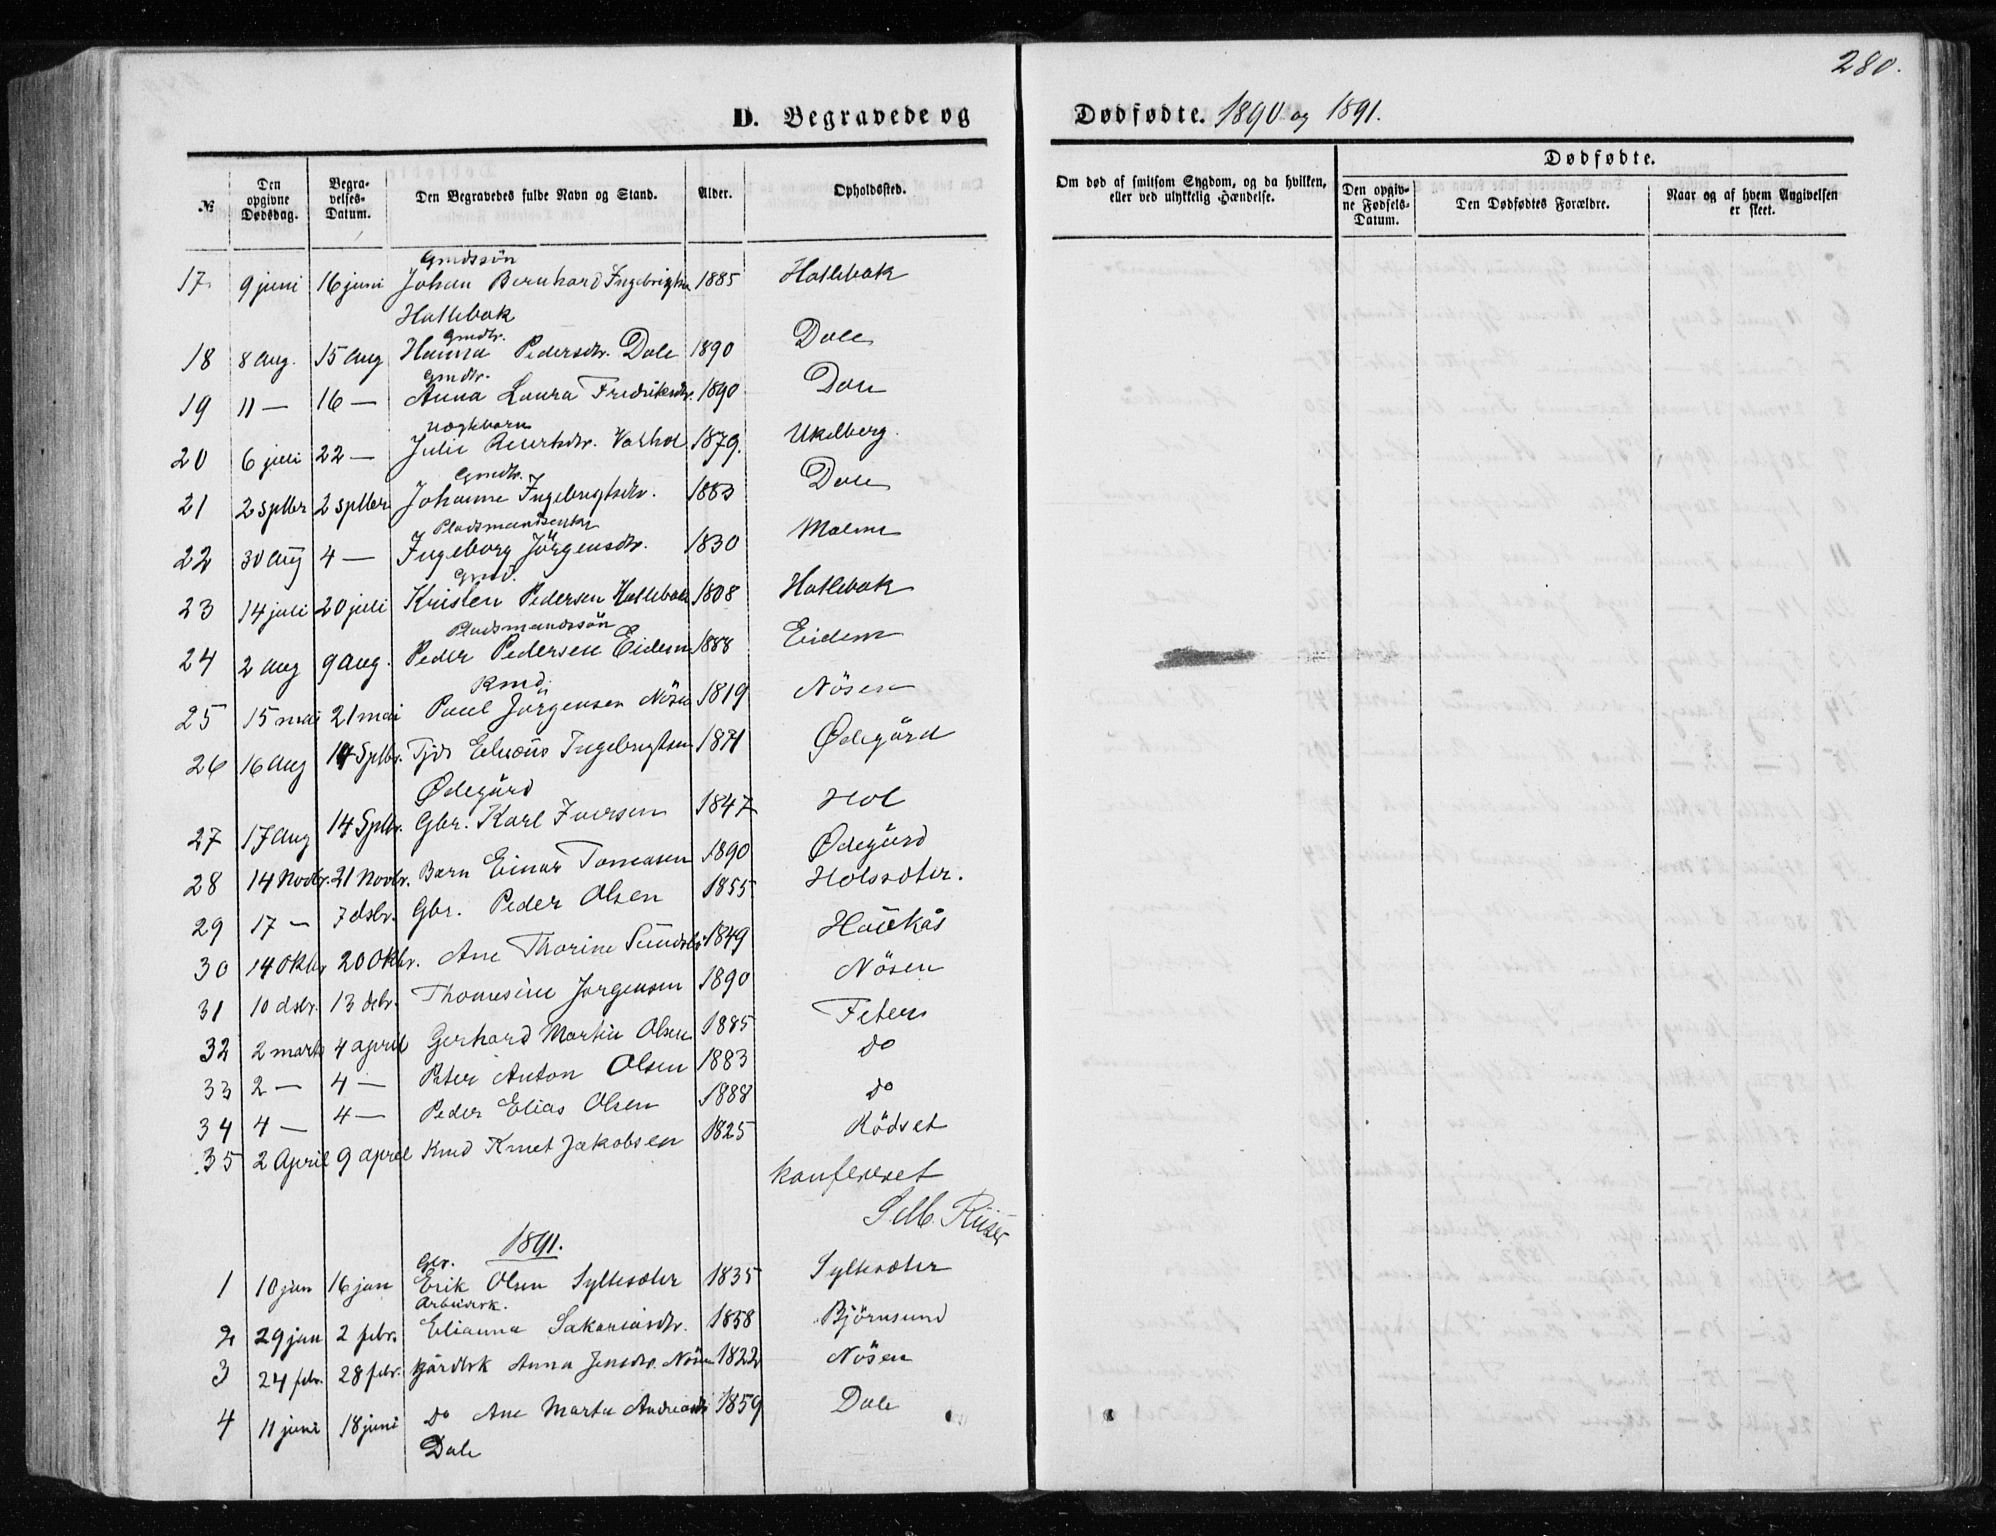 280.
D. Begravede og Dødfødte. 1890 og 1891.
№
Den opgivne Dødsdag.
Begravelses-Datum.
Den Begravedes fulde Navn og Stand.
Alder.
Opholdssted.
Om død af smitsom Sygdom, og da hvilken, eller ved ulykkelig Hændelse.
Dødfødte.
Den opgivne Fødsels-Datum.
Den Dødfødtes Forældre.
Naar og af hvem Angivelsen er skeet.
Gmdssön
17 9 juni 16 juni Johan Bernhard Ingebrigtsen 1885 Hatlebak
Hatlebak
Gmdtr.
18 8 aug. 15 aug Hanna Pedersdtr. Dale 1890 Dale
Gmdtr.
19 11 — 16 — Anna Laura Fredriksdtr. 1890 Dale
20 6 juli 22 — Julie 1879. Ukelberg.
Gmdtr.
21 2 sptbr 2 sptbr Johanne Ingebrigtsdtr. 1883 Dale
Pladsmandsenke
22 30 aug 4 — Ingeborg Jörgensdtr. 1830 Malme
Gmd.
23 14 juli 20 juli Kristen Pedersen Hatlebak 1808 Hatlebak
Pladsmandssön
24 2 aug 9 aug. Peder Pedersen Eidem 1888 Eidem
Kmd.
25 15 mai 21 mai Paul Jörgensen Nösen 1819 Nösen
26 16 aug 14 Sptbr. Tjds Ingebrigtsen 1871 Ødegård
Ødegård
27 17 aug 14 Sptbr. Gbr. Karl Iversen 1847 Hol
28 14 Novbr. 21 Novbr. Barn Einar Tomasen 1890 Ødegård
29 17 — 7 dsbr. Gbr. Peder Olsen 1855 Holssæter.
30 14 Oktbr 20 Oktbr. Ane Thorine 1849 Haukås
31 10 dsbr. 13 dsbr. Thomesine Jørgensen 1890 Nösen
32 2 marts 4 april Gerhard Martin Olsen 1885 Eeten
33 2 — 4 — Peter Anton Olsen 1883 do
34 4 — 4 — Peder Elias Olsen 1888 do
35 2 April 9 april Kmd Knut Jakobsen 1825 Rödset
konfereret
1891.
Gbr.
1 10 jan 16 jan Erik Olsen Syltesæter 1835 Syltesæter
Arbeidsk.
2 29 jan 2 febr. Elianna Sakariasdtr. 1858 Björnsund
3 24 febr. 28 febr. Gårdbrk Anna Jensdtr. Nösen 1822 Nösen
4 11 juni 18 juni do Ane Marta 1859 Dale
Dale